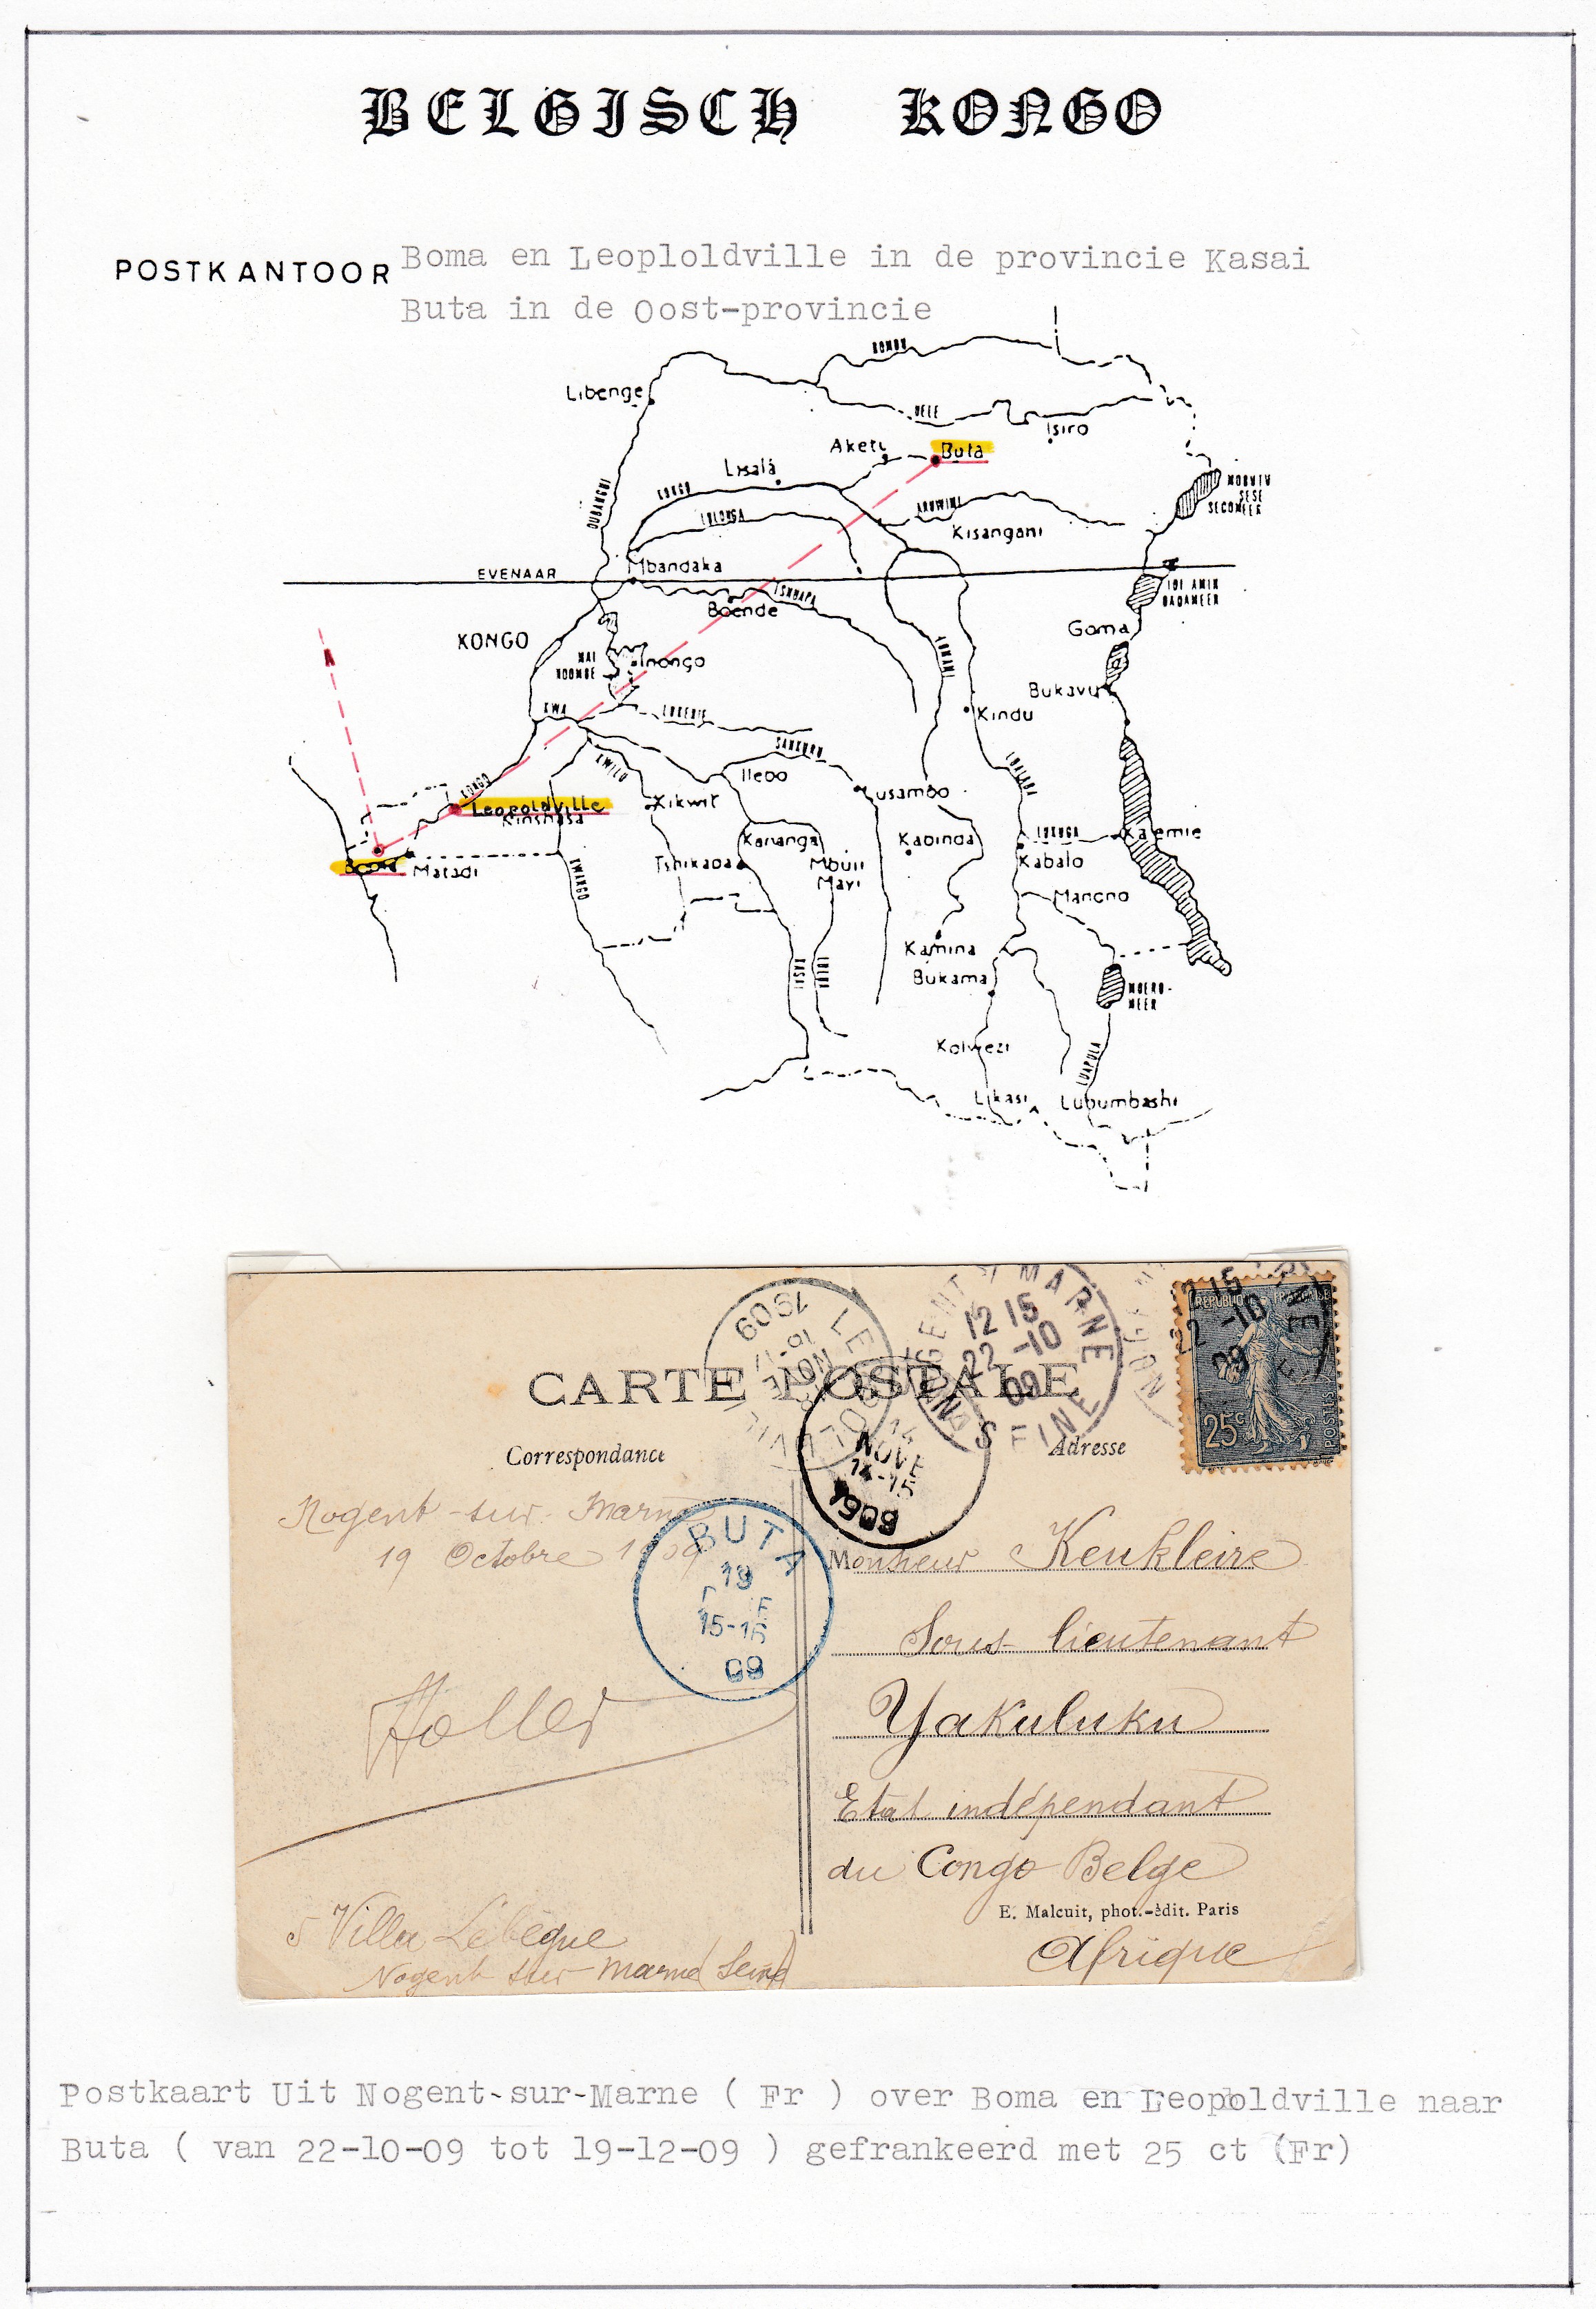 BELGISCH KONGO
POSTKANTOOR
Boma en Leoploldville in de provincie Kasai
Buta in de Oost-provincie
BOMU
Libenge
UELE
Isiro
Aketi
Buta
Lisala
KONGO
OUBANGUI
LULONGA
ARUWIMI
MOBUTU
SESE
SECOMEER
Kisangani
EVENAAR
Mbandaka
TSHUAPA
IDI AMIN
DADAMEER
Boende
Goma
KONGO
LOMAMI
MAI
NDOMBE
Inongo
Bukavu
KWA
LUKENIE
Kindu
SANKURU
KWILU
Ilebo
LUALABA
KONGO
Leopoldville
Kinshasa
Kikwit
Lusambo
Boma
Matadi
Kananga
Kabinda
LUKUGA
Kalemie
Tshikapa
Mbuji
Mayi
Kabalo
KWANGO
Manono
Kamina
KASAI
Bukama
MOERO-
MEER
Kolwezi
LUAPULA
Likasi
Lubumbashi
CARTE POSTALE
Correspondance
Adresse
LEOPOLDVILLE
NOVE
1909
NOGENT S/ MARNE
12 15
22 -10
09
SEINE
12 15
22 -10
09
REPUBLIQUE FRANÇAISE
25c
POSTES
14
NOVE
14-15
1909
BUTA
19
15-16
09
Nogent-sur-Marne
19 Octobre 1909
Monsieur Keukleire
Sous-lieutenant
Yakuluku
Etat indépendant
du Congo Belge
E. Malcuit, phot.-édit. Paris
Afrique
5 Villa Lebègue
Nogent sur Marne (Seine)
Postkaart Uit Nogent-sur-Marne ( Fr ) over Boma en Leopoldville naar
Buta ( van 22-10-09 tot 19-12-09 ) gefrankeerd met 25 ct (Fr)